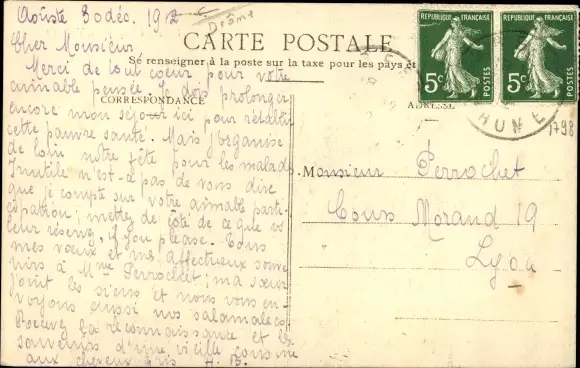 Aouste 30 déc. 1912
Drôme
Cher Monsieur
CARTE POSTALE
Se renseigner à la poste sur la taxe pour les pays et
Merci de tout coeur pour votre
aimable pensée. Je dois prolonger
CORRESPONDANCE
ADRESSE
encore mon séjour ici pour rétablir
cette pauvre santé. Mais j'organise
de loin notre fête pour les malades
Inutile n'est-ce pas de vous dire
que je compte sur votre aimable parti-
cipation; mettez de côté de ce qu'ils
leur réservez, if you please. Tous
mes voeux et mes affectueux souve
nirs à Mme Perrochet; ma soeur
joint les siens et nous vous en-
voyons aussi nos salamalecs
Recevez la reconnaissance et les
souvenirs d'une vieille cousine
aux cheveux gris A. B.
REPUBLIQUE FRANÇAISE
5c
POSTES
REPUBLIQUE FRANÇAISE
5c
POSTES
HUNE
1798
Monsieur Perrochet
Cours Morand 19
Lyon